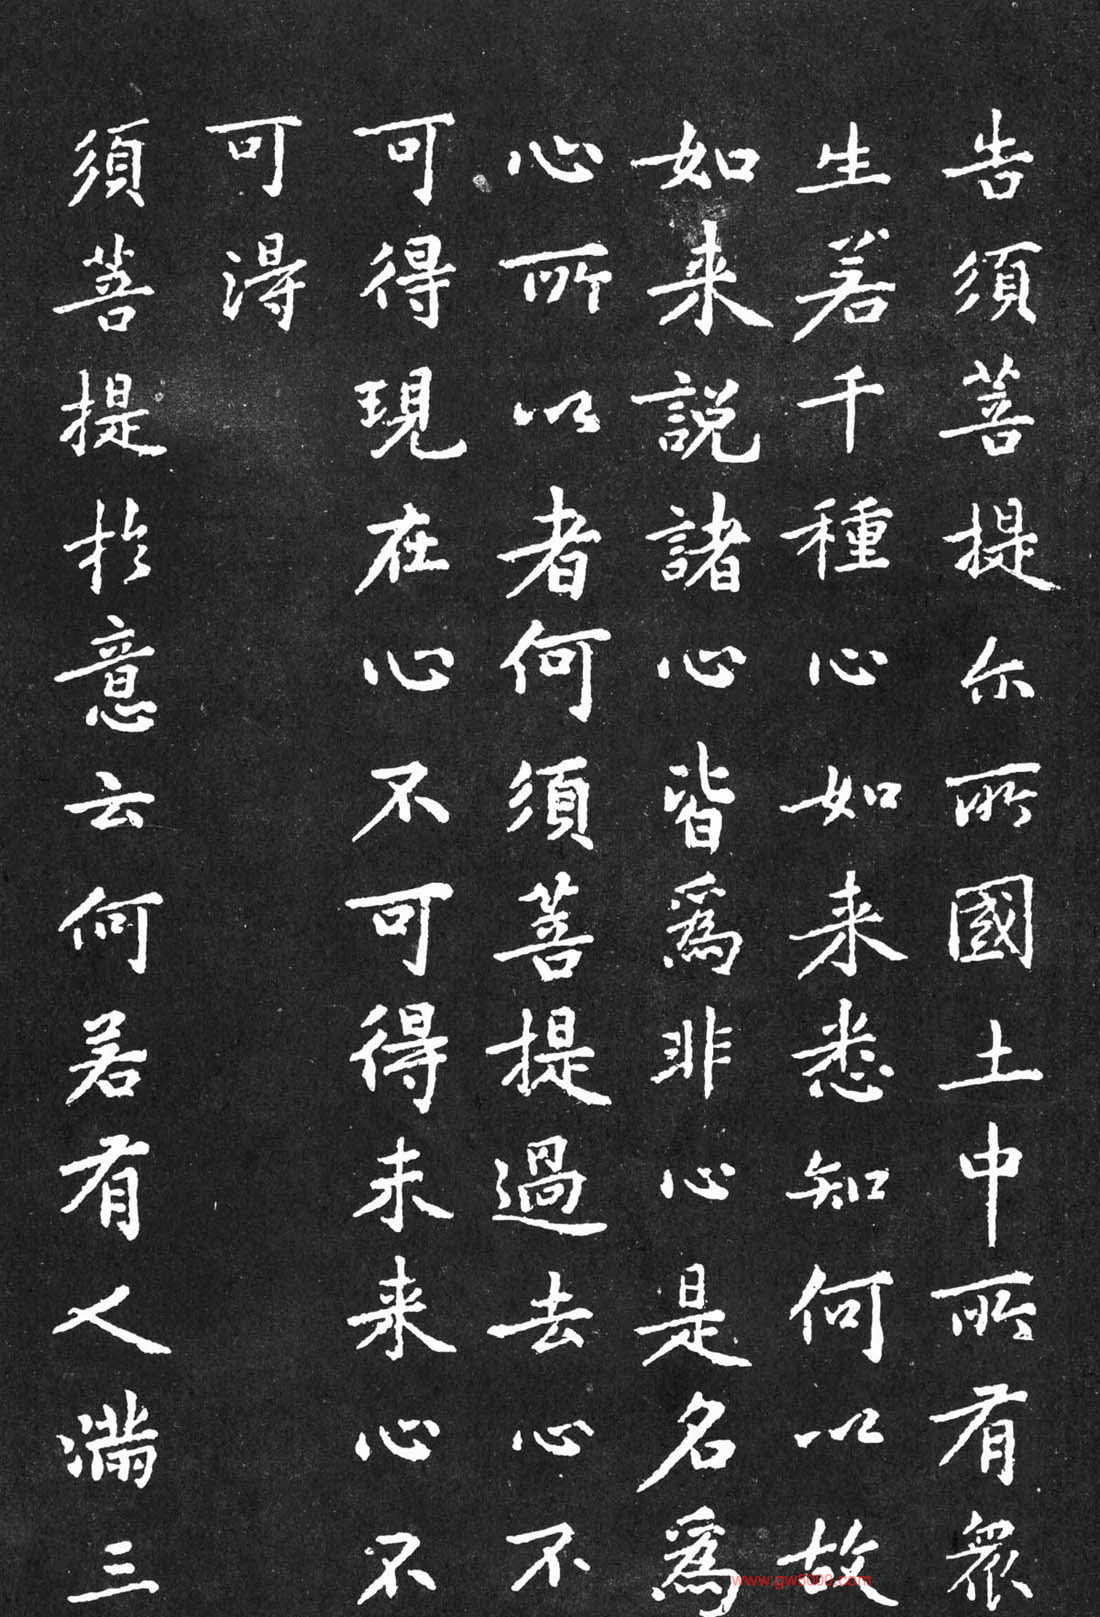 告須菩提尒所國土中所有衆
生若干種心如来悉知何以故
如来説諸心皆爲非心是名爲
心所以者何須菩提過去心不
可得現在心不可得未来心不
可得
須菩提扵意云何若有人滿三
www.gw5000.com